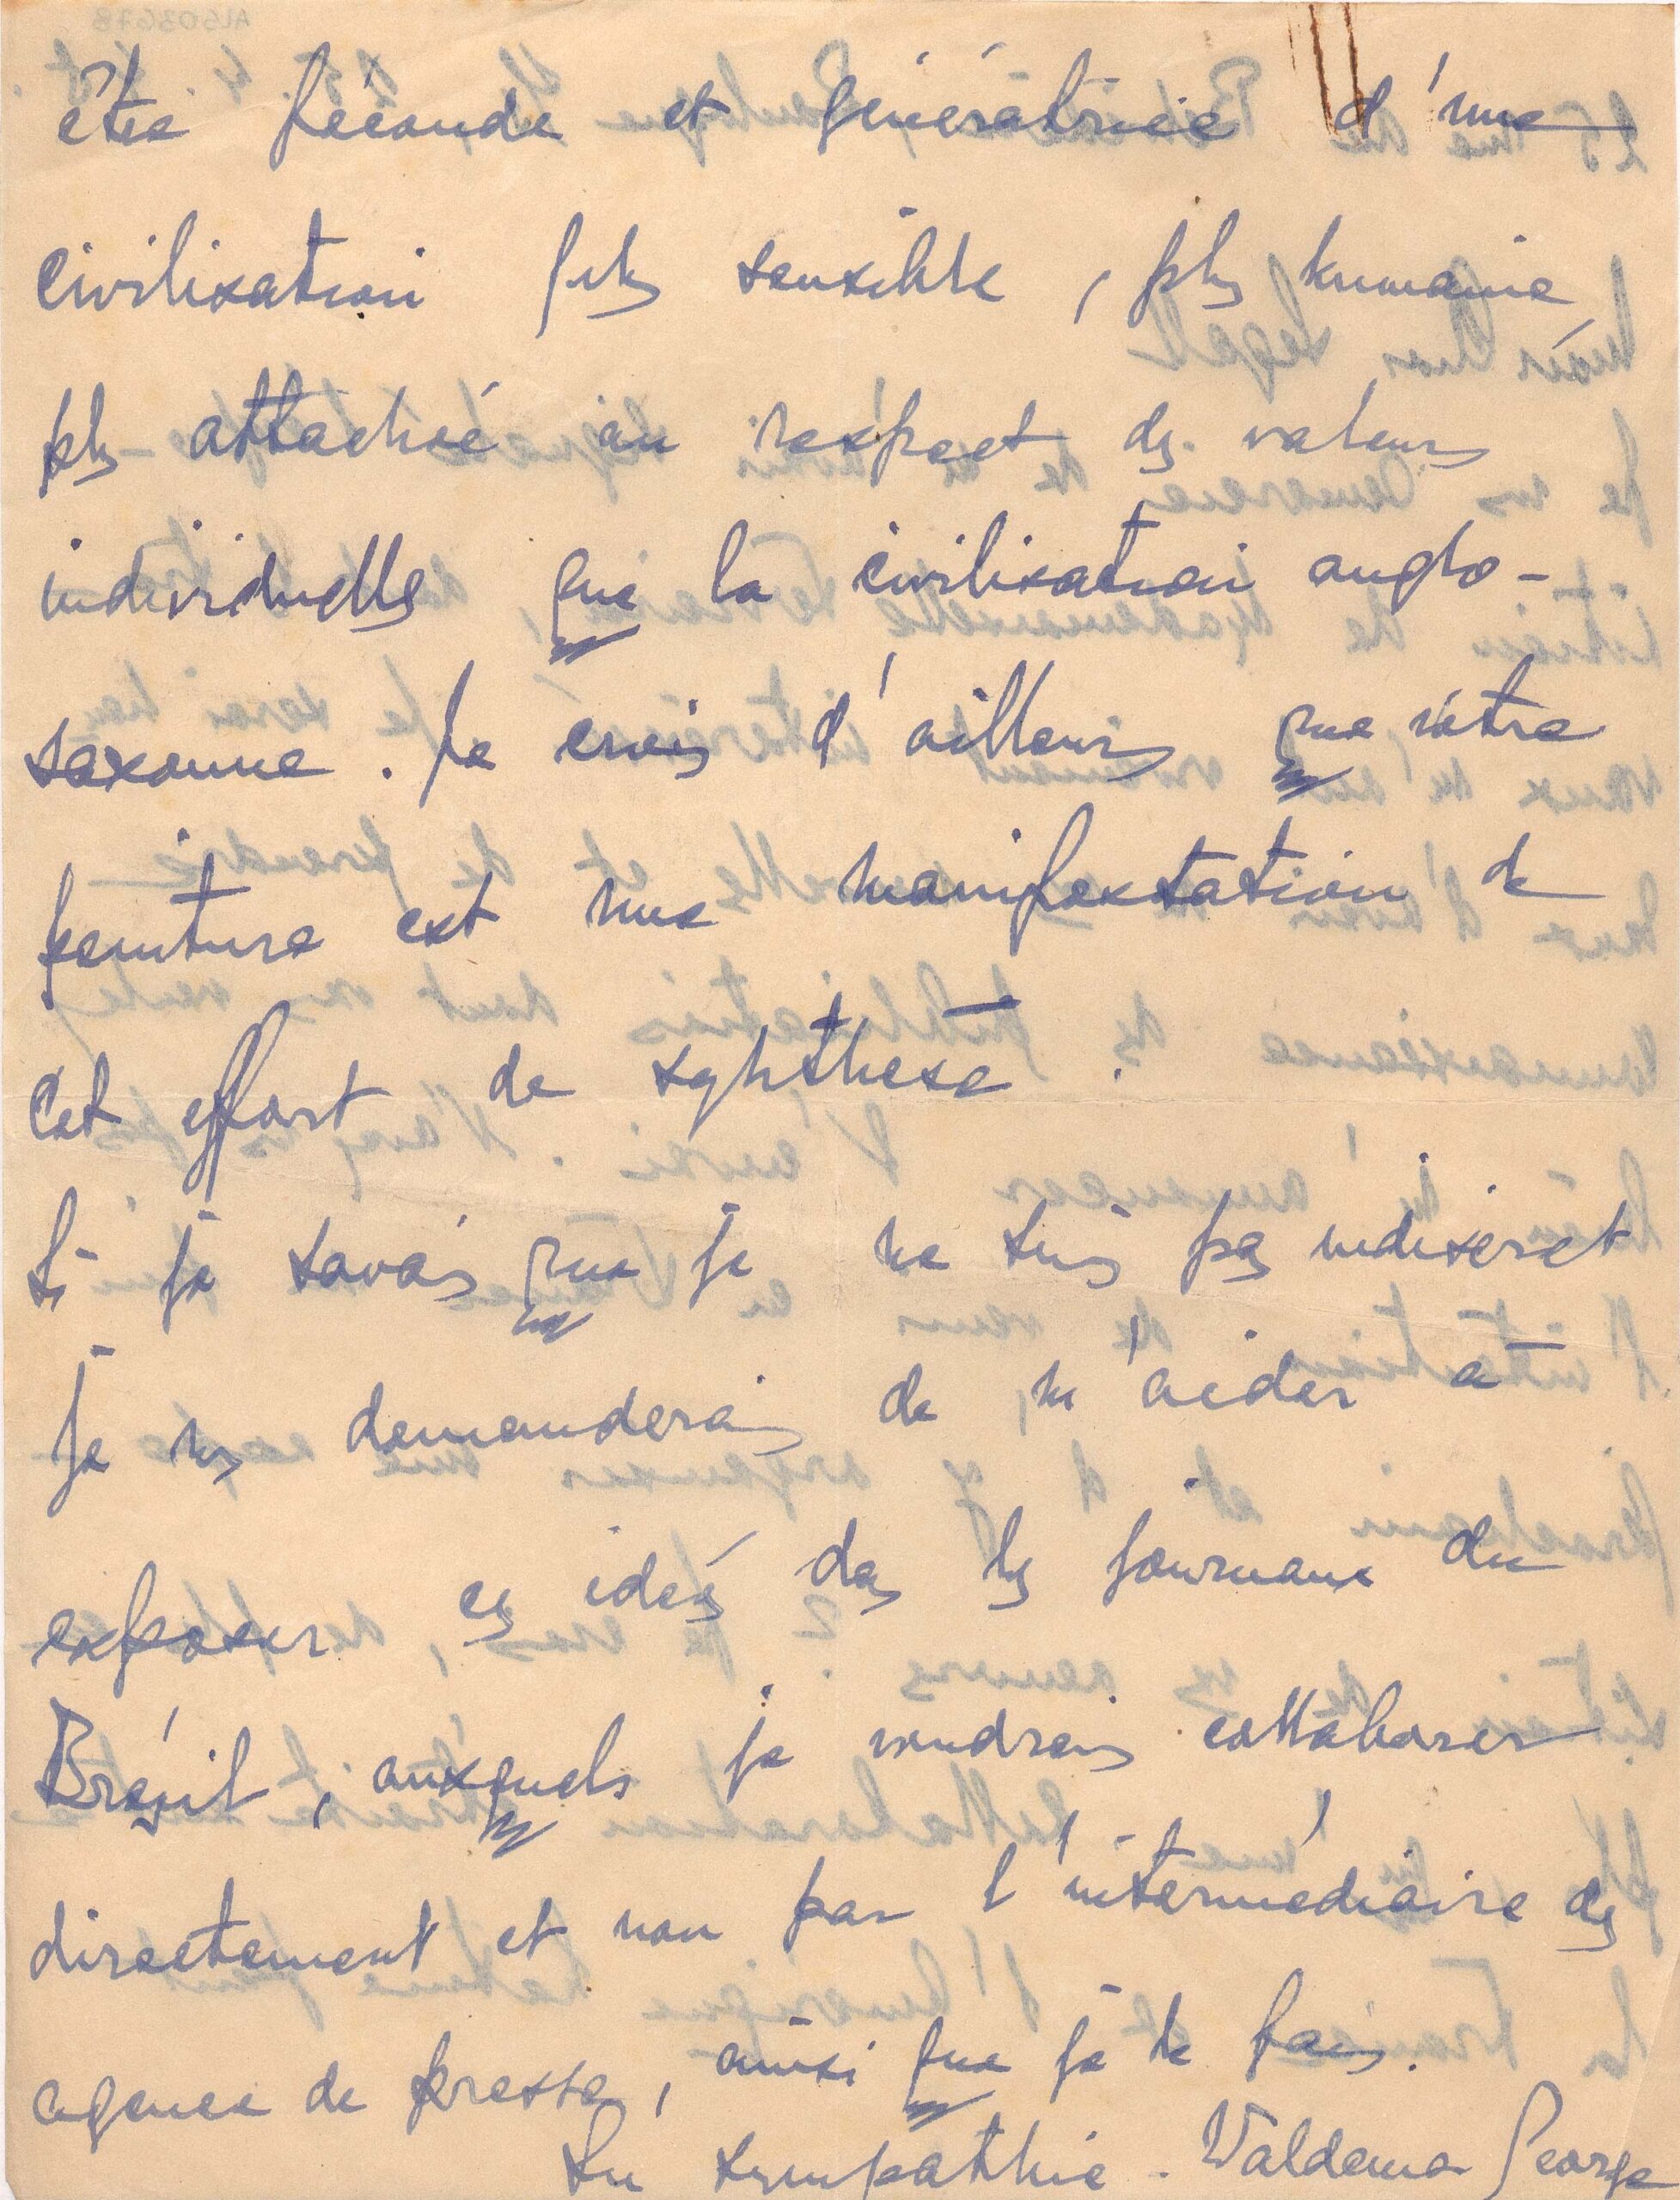 être féconde et génératrice d'une
civilisation plus sensible, plus humaine,
plus attachée au respect des valeurs
individuelles que la civilisation anglo-
saxonne. Je crois d'ailleurs que votre
peinture est une manifestation de
cet effort de synthèse.
Si je savais que je ne suis pas indiscret
je vs demanderais de m'aider à
exposer ces idées dans les journaux du
Brésil, auxquels je voudrais collaborer
directement et non par l'intermédiaire des
agences de presse, ainsi que je le fais.
En sympathie. Waldemar George